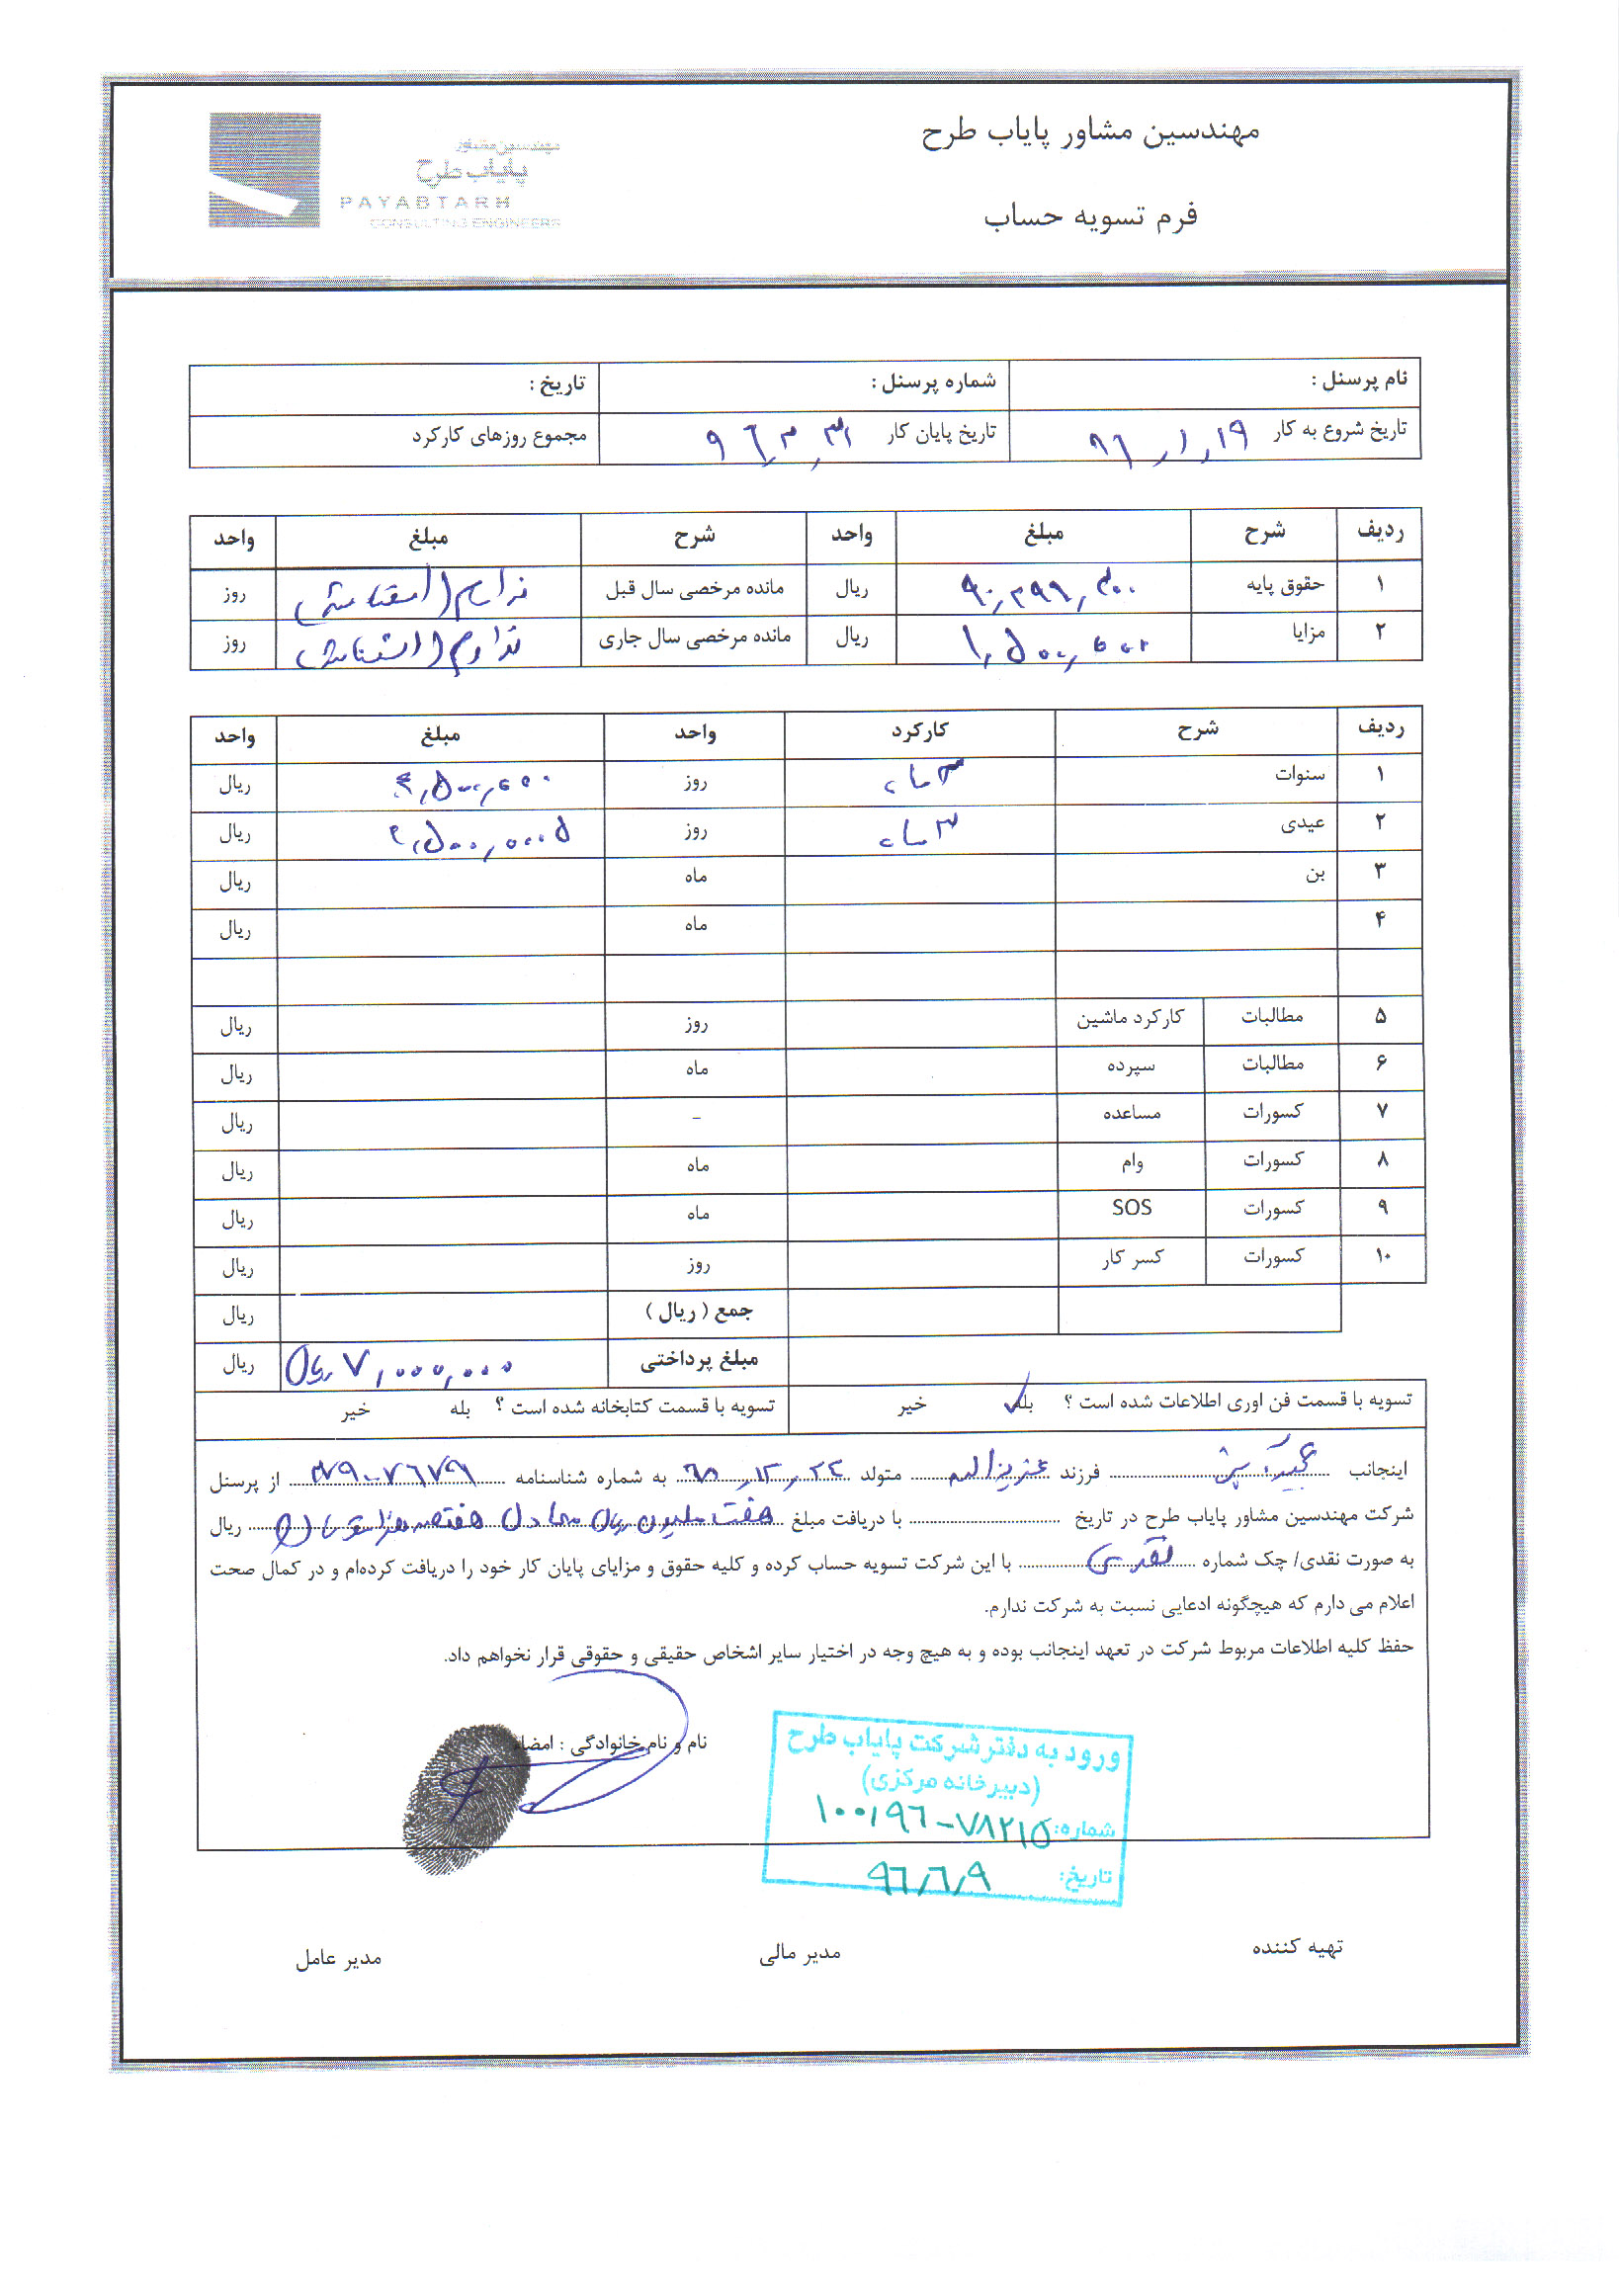 مهندسین مشاور پایاب طرح
مهندسین مشاور
پایاب طرح
PAYABTARH
CONSULTING ENGINEERS
فرم تسویه حساب
نام پرسنل : شماره پرسنل : تاریخ :
تاریخ شروع به کار ۹۶,۱,۱۹ تاریخ پایان کار ۹۶,۳,۳۱ مجموع روزهای کارکرد
ردیف شرح مبلغ واحد شرح مبلغ واحد
۱ حقوق پایه ریال مانده مرخصی سال قبل ندارم روز
۲ مزایا ۱,۵۰۰,۰۰۰ ریال مانده مرخصی سال جاری ندارم روز
ردیف شرح کارکرد واحد مبلغ واحد
۱ سنوات ۳ ماه روز ریال
۲ عیدی ۳ ماه روز ریال
۳ بن ماه ریال
۴ ماه ریال
۵ مطالبات کارکرد ماشین روز ریال
۶ مطالبات سپرده ماه ریال
۷ کسورات مساعده - ریال
۸ کسورات وام ماه ریال
۹ کسورات SOS ماه ریال
۱۰ کسورات کسر کار روز ریال
جمع ( ریال ) ریال
مبلغ پرداختی ۷,۰۰۰,۰۰۰ ریال ریال
تسویه با قسمت فن اوری اطلاعات شده است ؟ بله خیر تسویه با قسمت کتابخانه شده است ؟ بله خیر
اینجانب فرزند عزیزاله متولد ۶۸,۱۲,۲۲ به شماره شناسنامه از پرسنل
شرکت مهندسین مشاور پایاب طرح در تاریخ با دریافت مبلغ هفت میلیون ریال معادل هفتصد هزار تومان ریال
به صورت نقدی/ چک شماره نقدی با این شرکت تسویه حساب کرده و کلیه حقوق و مزایای پایان کار خود را دریافت کرده‌ام و در کمال صحت
اعلام می دارم که هیچگونه ادعایی نسبت به شرکت ندارم.
حفظ کلیه اطلاعات مربوط شرکت در تعهد اینجانب بوده و به هیچ وجه در اختیار سایر اشخاص حقیقی و حقوقی قرار نخواهم داد.
نام و نام خانوادگی : امضاء
ورود به دفتر شرکت پایاب طرح
(دبیرخانه مرکزی)
شماره: ۱۰۰/۹۶-۷۸۲۱۵
تاریخ: ۹۶/۶/۹
تهیه کننده مدیر مالی مدیر عامل